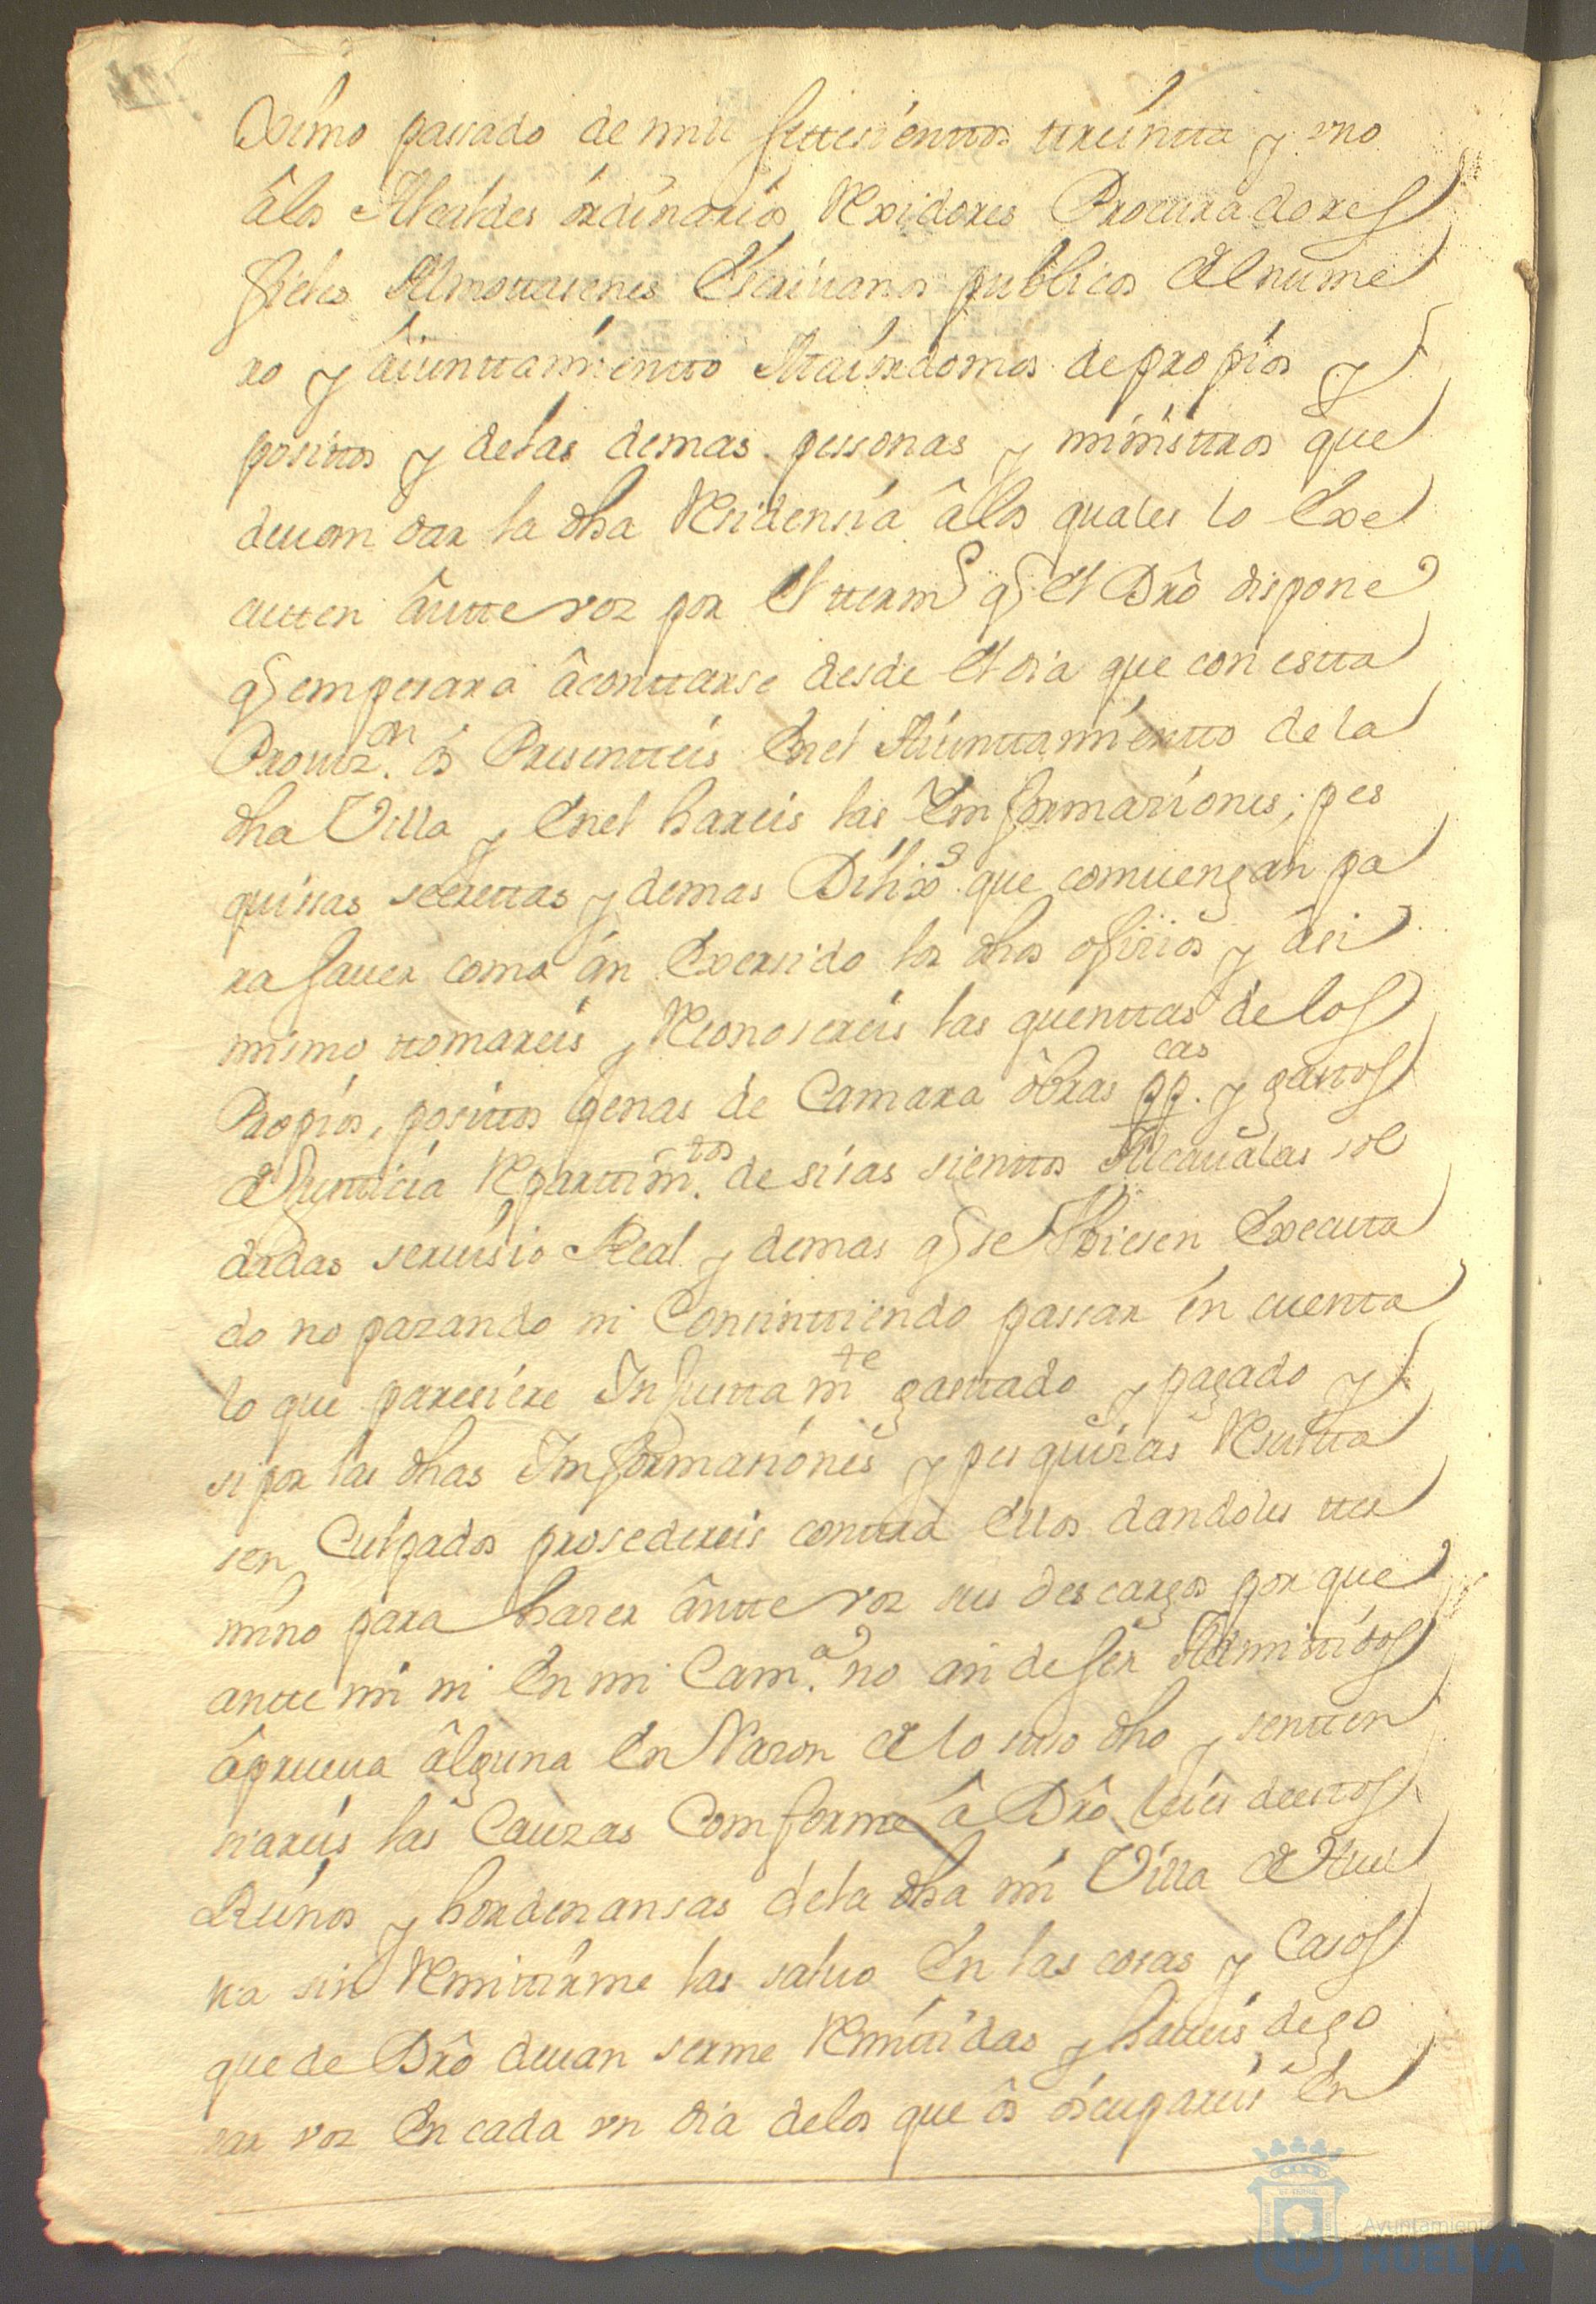 Ximo passado de mil settesienttos ttreintta y uno
â los Alcaldes ordinarios Rexidores Procuradores
fieles Almottasenes Escrivanos publicos del nume
ro y âiunttamientto Maiordomos de propios y
posittos y de las demas perssonas y ministtros que
devan dar la dha Residensia â los quales lo Exe
cutten ântte vos por el tterm.º q̃ el Dr̂o dispone
q̃ empesara âconttarse desde el dia que con estta
Proviz.on ôs Presentteis En el Aiunttamientto de la
dha Villa y En el hareis las Imformaziones; pes
quissas secrettas y demas Dilix.s que comvengan pa
ra saver como ân Exersido los dhos ofisios y âsi
mismo ttomareis y Reconosereis las quenttas de los
Propios, posittos penas de Camara ôbras pp.cas y gastos
de Justticia Reparttim.tos de sisas sienttos Alcavalas sol
dadas servisio Real y demas q̃ se Hbiesen Executa
do no pazando ni Consinttiendo passar en cuenta
lo que paresiere Injustam.te gasttado y pagado y
si por las dhas Imformasiones y pesquizas Resultta
sen Culpados prosedereis conttra Ellos dandoles tter
mino para hazer ântte vos sus descargos por que
antte mi ni En mi Cam.a no an de ser Admittidos
âprueva âlguna En Razon de lo suso dho y sentten
siareis las Cauzas Comforme â Dr̂o leies de estos
Reinos y hordenansas de la dha mi Villa de Huel
va sin Remittirme las salvo En las cosas y Casos
que de Dr̂o devan serme Remitidas y haveis de go
sar vos En cada un dia de los que ôs ôscupareis En
Ayuntamiento
HUELVA